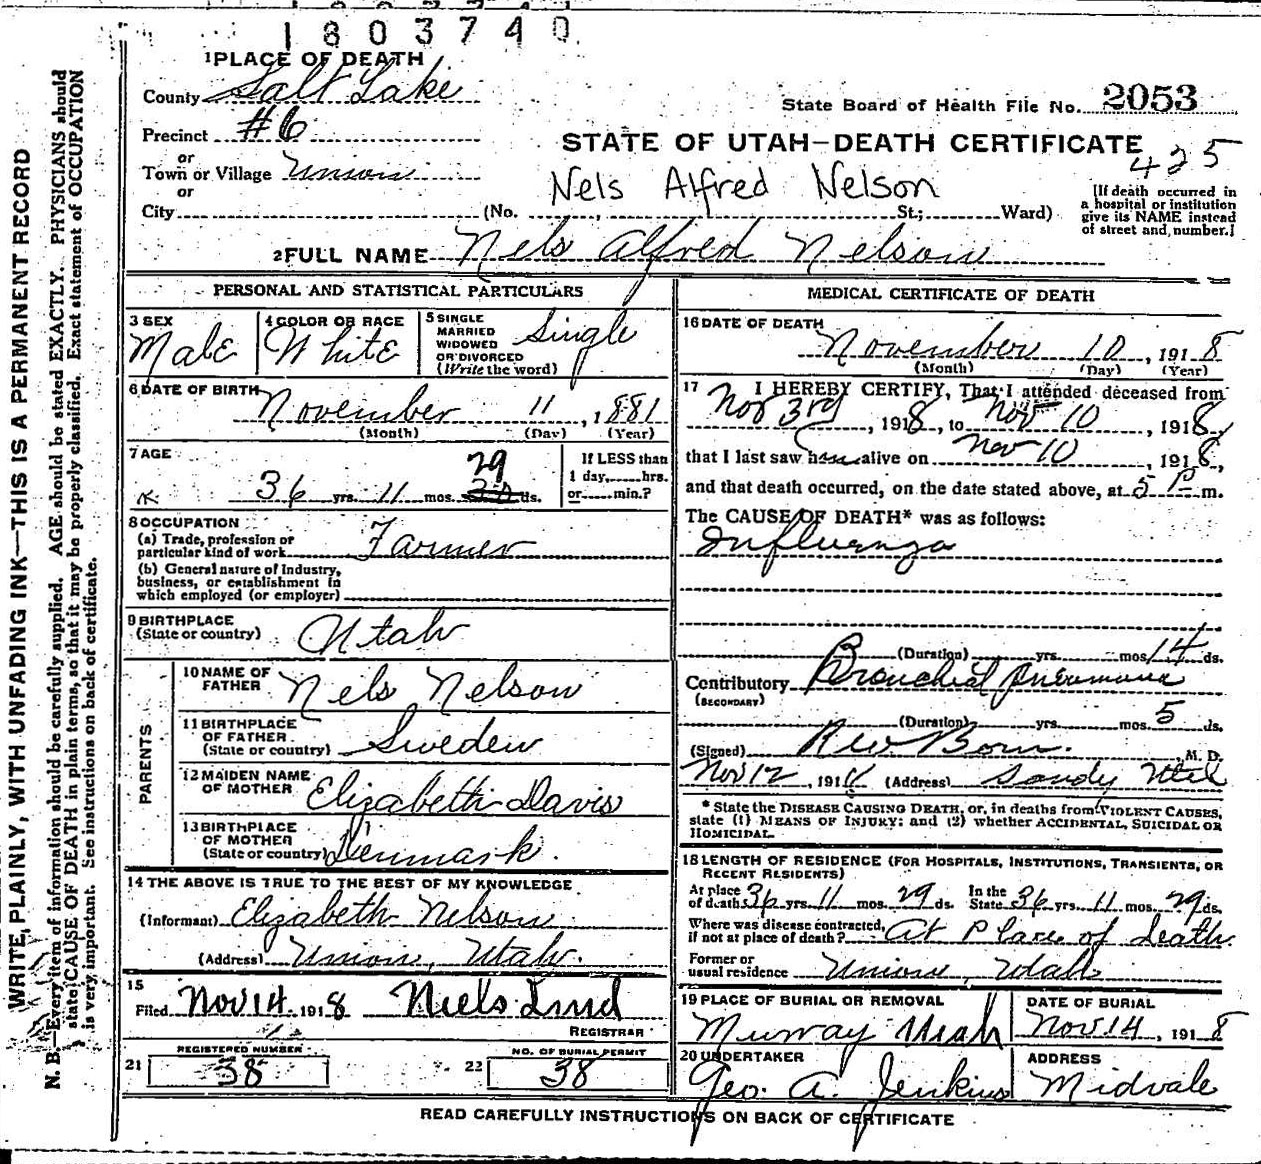 1803740
1 PLACE OF DEATH
County Salt Lake
State Board of Health File No. 2053
Precinct #6
STATE OF UTAH—DEATH CERTIFICATE
or
425
Town or Village Union
Nels Alfred Nelson
or
City (No. , St.; Ward)
[If death occurred in
a hospital or institution
give its NAME instead
of street and number.]
2 FULL NAME Nels Alfred Nelson
PERSONAL AND STATISTICAL PARTICULARS
3 SEX
Male
4 COLOR OR RACE
White
5 SINGLE
MARRIED
WIDOWED
OR DIVORCED
(Write the word)
Single
6 DATE OF BIRTH
November 11, 1881
(Month) (Day) (Year)
7 AGE
36 yrs. 11 mos. 29 ds.
If LESS than
1 day, hrs.
or min.?
8 OCCUPATION
(a) Trade, profession or
particular kind of work Farmer
(b) General nature of Industry,
business, or establishment in
which employed (or employer)
9 BIRTHPLACE
(State or country) Utah
PARENTS
10 NAME OF
FATHER Nels Nelson
11 BIRTHPLACE
OF FATHER
(State or country) Sweden
12 MAIDEN NAME
OF MOTHER Elizabeth Davis
13 BIRTHPLACE
OF MOTHER
(State or country) Denmark.
14 THE ABOVE IS TRUE TO THE BEST OF MY KNOWLEDGE
(Informant) Elizabeth Nelson
(Address) Union, Utah.
15
Filed Nov 14 1918 Niels Lind
REGISTRAR
21 REGISTERED NUMBER
38
22 NO. OF BURIAL PERMIT
38
MEDICAL CERTIFICATE OF DEATH
16 DATE OF DEATH
November 10, 1918
(Month) (Day) (Year)
17 I HEREBY CERTIFY, That I attended deceased from
Nov 3rd, 1918, to Nov 10, 1918,
that I last saw him alive on Nov 10, 1918,
and that death occurred, on the date stated above, at 5 P m.
The CAUSE OF DEATH* was as follows:
Influenza
(Duration) yrs. mos. 14 ds.
Contributory Bronchial Pneumonia
(SECONDARY)
(Duration) yrs. mos. 5 ds.
(Signed) M. D.
Nov 12, 191 (Address) Sandy Utah
* State the DISEASE CAUSING DEATH, or, in deaths from VIOLENT CAUSES,
state (1) MEANS OF INJURY; and (2) whether ACCIDENTAL, SUICIDAL OR
HOMICIDAL.
18 LENGTH OF RESIDENCE (FOR HOSPITALS, INSTITUTIONS, TRANSIENTS, OR
RECENT RESIDENTS)
At place of death 36 yrs. 11 mos. 29 ds. In the State 36 yrs. 11 mos. 29 ds.
Where was disease contracted,
if not at place of death? At Place of death
Former or
usual residence Union, Utah
19 PLACE OF BURIAL OR REMOVAL
Murray Utah
DATE OF BURIAL
Nov 14, 1918
20 UNDERTAKER
Geo. A. Jenkins
ADDRESS
Midvale
READ CAREFULLY INSTRUCTIONS ON BACK OF CERTIFICATE
WRITE PLAINLY, WITH UNFADING INK—THIS IS A PERMANENT RECORD
N. B.—Every item of information should be carefully supplied. AGE should be stated EXACTLY. PHYSICIANS should
state CAUSE OF DEATH in plain terms, so that it may be properly classified. Exact statement of OCCUPATION
is very important. See instructions on back of certificate.